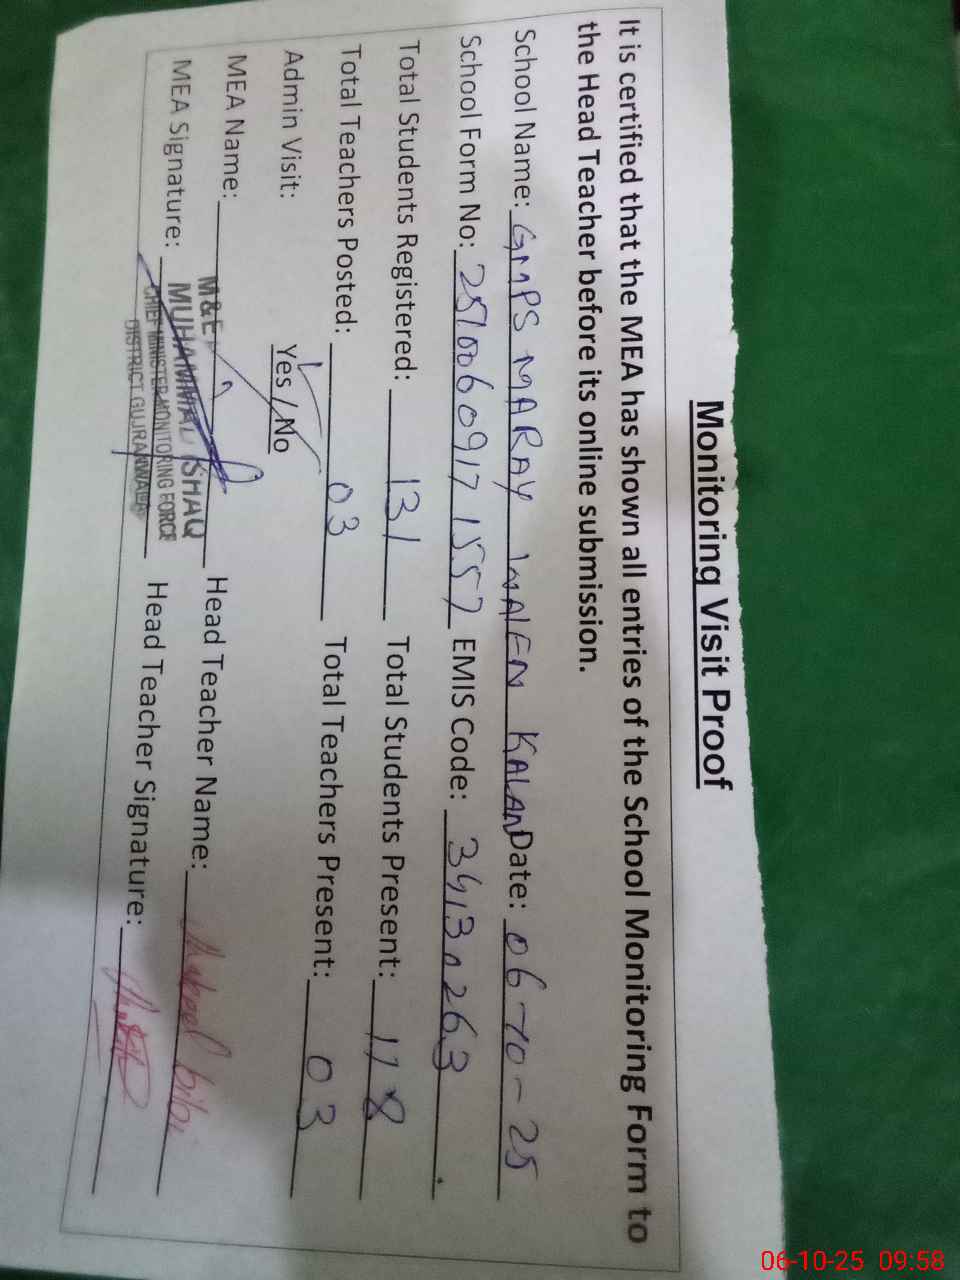 Monitoring Visit Proof
It is certified that the MEA has shown all entries of the School Monitoring Form to
the Head Teacher before its online submission.
School Name: GMPS MARAY WALEN KALAN Date: 06-10-25
School Form No: 2510060917 1557 EMIS Code: 34130263
Total Students Registered: 131 Total Students Present: 118
Total Teachers Posted: 03 Total Teachers Present: 03
Admin Visit: Yes / No
MEA Name: M&E Head Teacher Name: bibi
MUHAMMAD ISHAQ
MEA Signature: Head Teacher Signature:
CHIEF MINISTER MONITORING FORCE
DISTRICT GUJRANWALA
06-10-25 09:58